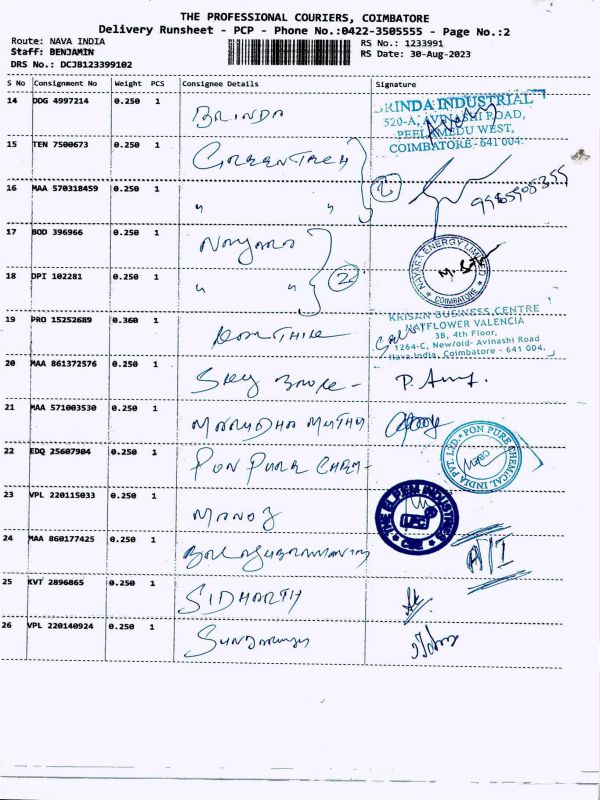 THE PROFESSIONAL COURIERS, COIMBATORE
Delivery Runsheet - PCP - Phone No.:0422-3505555 - Page No.:2
Route: NAVA INDIA
Staff: BENJAMIN
DRS No.: DCJB123399102
RS No.: 1233991
RS Date: 30-Aug-2023
S No Consignment No Weight PCS Consignee Details Signature
14 DDG 4997214 0.250 1 BRINDA
BRINDA INDUSTRIAL
520-A, AVINASHI ROAD,
PEELAMEDU WEST,
COIMBATORE-641 004.
15 TEN 7500673 0.250 1 GREENTECH
16 MAA 570318459 0.250 1 " "
2
17 BOD 396966 0.250 1 NAYARA
NAYARA ENERGY LIMITED
COIMBATORE
18 DPI 102281 0.250 1 " "
19 PRO 15252689 0.360 1
KRISAN BUSINESS CENTRE
MAYFLOWER VALENCIA
3B, 4th Floor,
1264-C, New/old- Avinashi Road
Nava India, Coimbatore - 641 004.
20 MAA 861372576 0.250 1 SKY
21 MAA 571003530 0.250 1 MARUDHA MUTHU
22 EDQ 25607904 0.250 1 PON PURE CHEM-
PON PURE CHEMICAL INDIA PVT. LTD.
CBE
23 VPL 220115033 0.250 1 MANOJ
THE EL PEM INDUSTRIES
CBE
24 MAA 860177425 0.250 1 BALASUBRAMANIAM
25 KVT 2896865 0.250 1 SIDHARTH
26 VPL 220140924 0.250 1